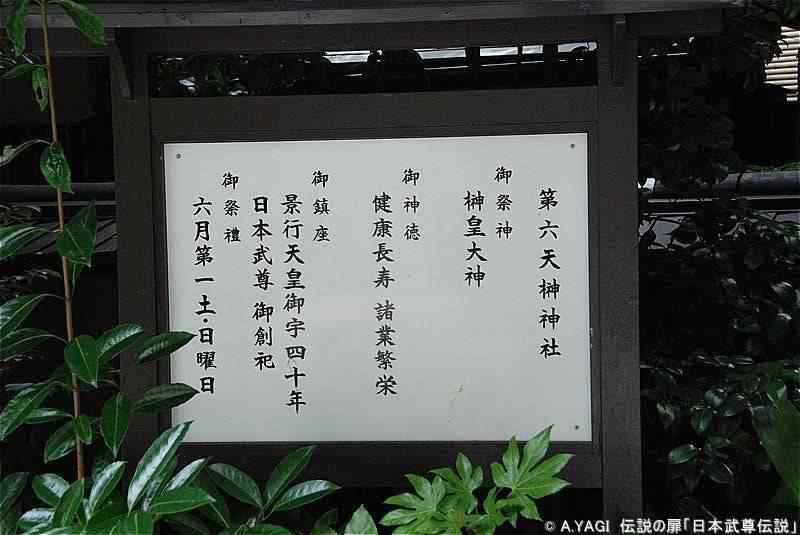 第六天榊神社
御祭神
榊皇大神
御神徳
健康長寿 諸業繁栄
御鎮座
景行天皇御宇四十年
日本武尊 御創祀
御祭禮
六月第一土・日曜日
© A.YAGI 伝説の扉「日本武尊伝説」